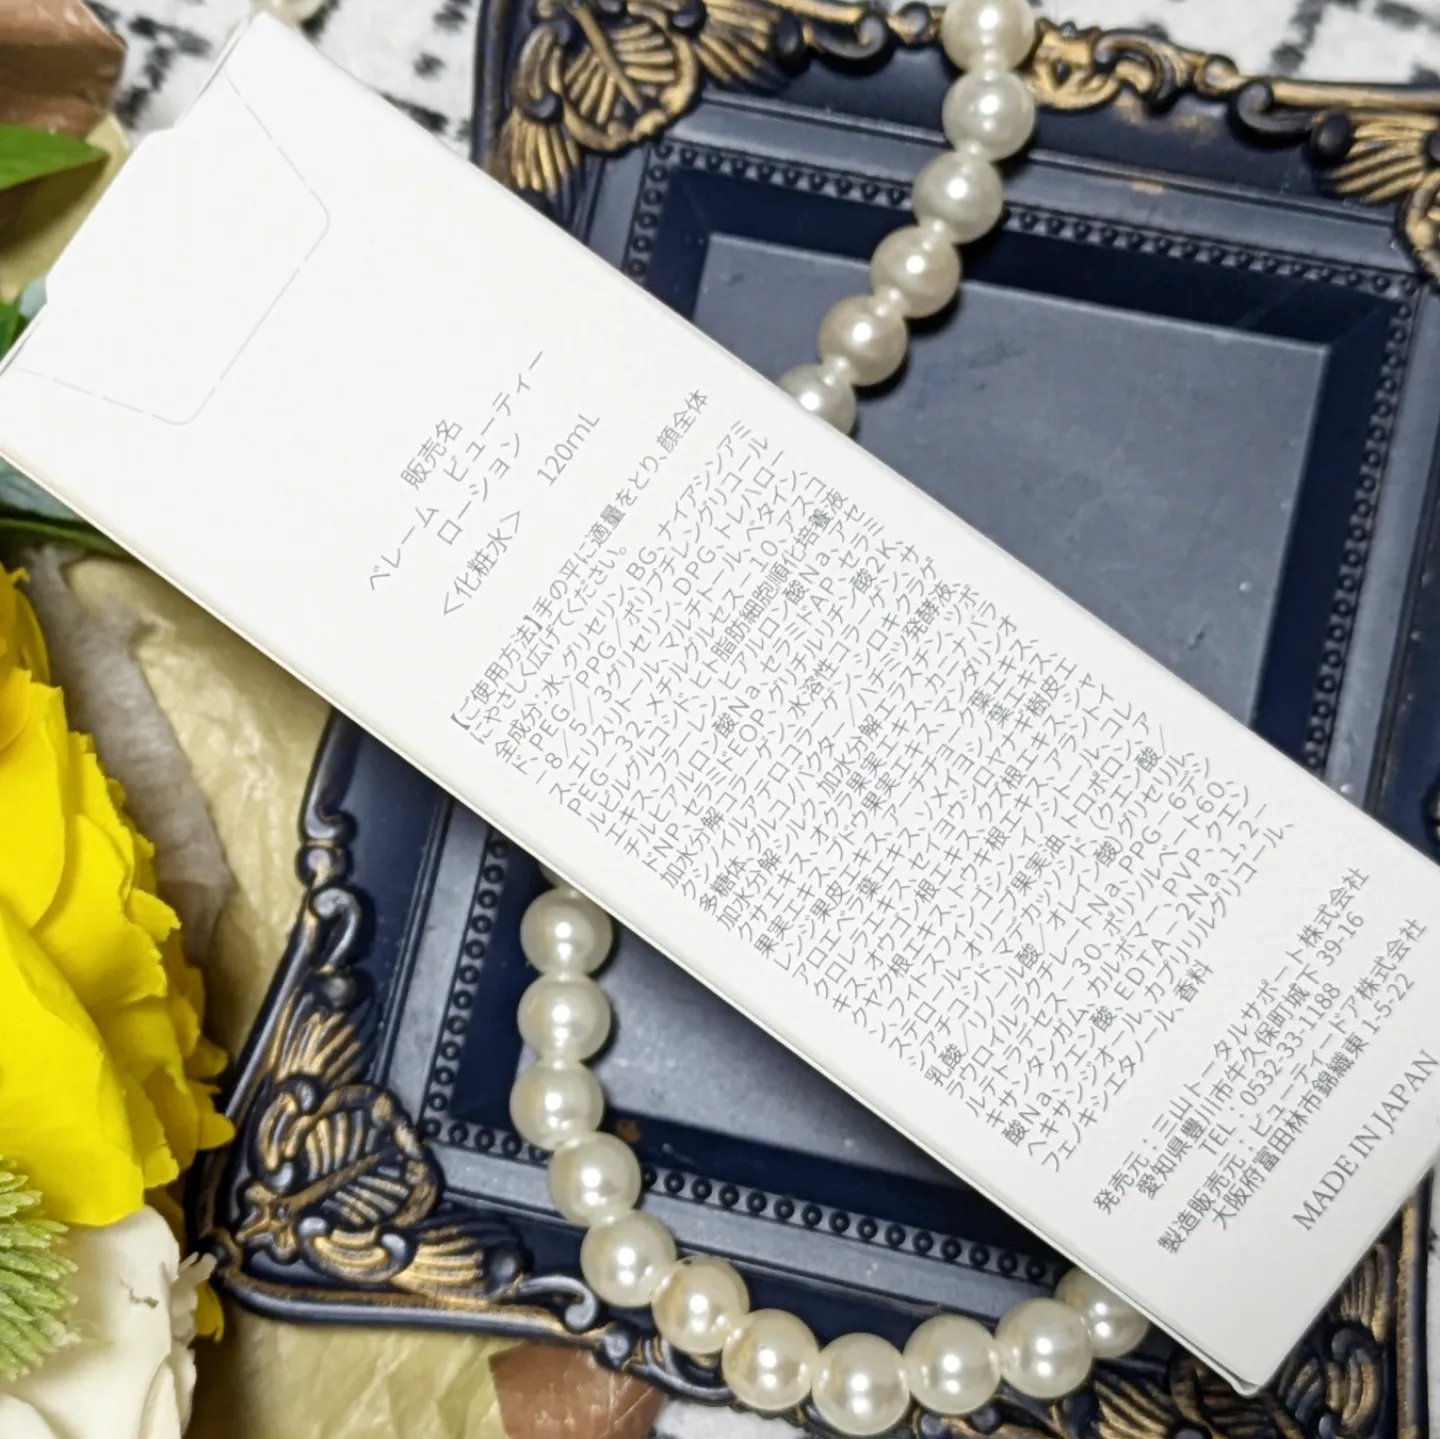 販売名
ベレーム ビューティー
ローション
<化粧水> 120mL
【ご使用方法】手の平に適量をとり、顔全体
にやさしく広げてください。
全成分:水、グリセリン、BG、ナイアシンアミ
ド、PEG/PPG/ポリブチレングリコール
-8/5/3グリセリン、DPG、トレハロー
ス、エリスリトール、マルチトール、ベタイン、
PEG-32、メチルグルセス-10、アスコ
ルビルグルコシド、ヒト脂肪細胞順化培養液
エキス、フラーレン、ヒアルロン酸Na、アセ
チルヒアルロン酸Na、セラミドAP、セラミ
ドNP、セラミドEOP、グリチルリチン酸2K、
加水分解コラーゲン、水溶性コラーゲン、サ
クシノイルアテロコラーゲン、シロキクラゲ
多糖体、グルコノバクター/ハチミツ発酵液、
加水分解シルク、加水分解エラスチン、ツボ
クサエキス、オクラ果実エキス、カニナバラ
果実エキス、ブドウ果実エキス、マンダリンオ
レンジ果皮エキス、アーチチョーク葉エキス、
アロエベラ葉エキス、ソメイヨシノ葉エキス、
クロレラエキス、セイヨウシロヤナギ樹皮エ
キス、オウゴン根エキス、クズ根エキス、シャ
クヤク根エキス、トウキ根エキス、アラントイ
ン、フィトスフィンゴシン、イノシトール、コレ
ステロール、オリーブ果実油、トロポロン、ア
シアチコシド、マデカッソシド、(クエン酸/
乳酸/リノール酸/オレイン酸)グリセリル、
ラウロイルラクチレートNa、PPG-6デシ
ルテトラデセス-30、ポリソルベート60、
キサンタンガム、カルボマー、PVP、クエン
酸Na、クエン酸、EDTA-2Na、1,2-
ヘキサンジオール、カプリリルグリコール、
フェノキシエタノール、香料
発売元:三山トータルサポート株式会社
愛知県豊川市牛久保町城下 39-16
TEL:0532-33-1188
製造販売元:ビューティードア株式会社
大阪府富田林市錦織東 1-5-22
MADE IN JAPAN